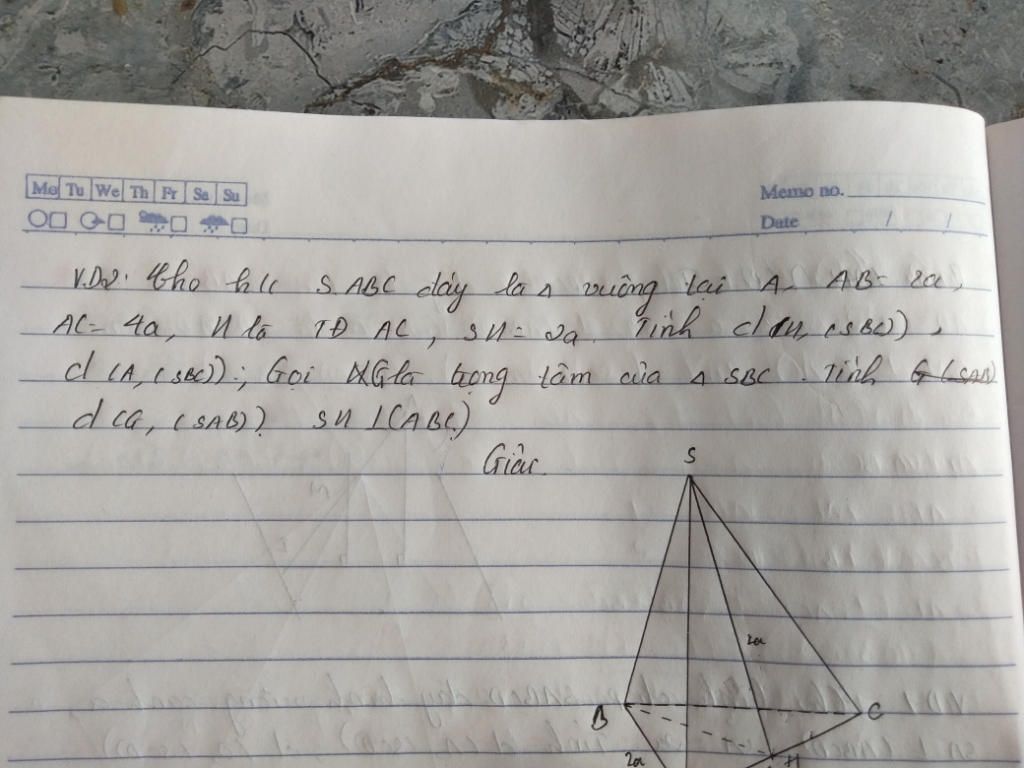 Mo Tu We Th Fr Sa Su
Memo no.
Date / /
V.D2: Cho h/c S.ABC đáy la Δ vuông tại A. AB= 2a,
AC= 4a, H là TĐ AC, SH= 2a. Tính d(H, (SBC)),
d(A, (SBC)); Gọi G là trọng tâm của Δ SBC. Tính G (SAB)
d(G, (SAB)). SH ⊥(ABC)
Giải.
S
2a
B
C
H
2a